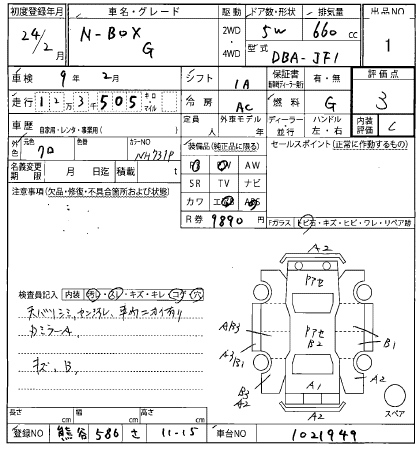 初度登録年月 車名・グレード 駆動 ドア数・形状 排気量 出品NO
24/2月 N-BOX G 2WD・4WD 5W 660cc 1
型式 DBA-JF1
車検 9年2月 シフト IA 保証書 有・無 評価点
走行 12万3千505 キロ・マイル 冷房 AC 燃料 G 3
車歴 自家用・レンタ・事業用( ) 定員 人 外車モデル 年 ディーラー・並行 ハンドル 左・右 内装評価 C
外色 元色 クロ 色替 カラーNO NH731P
装備品(純正品に限る) セールスポイント(正常に作動するもの)
名義変更期限 月 日迄 積載 t
PS PW AW
SR TV ナビ
カワ エアB ABS
R券 9890円
注意事項(欠品・修復・不具合箇所および状態)
Fガラス トビ石・キズ・ヒビ・ワレ・リペア跡
検査員記入 内装 汚れ・スレ・キズ・キレ・コゲ・穴
天バリシミ、センヌレ、車内ニオイ有り
カミラーA
キズ、B
A2
Pアセ
Pアセ
B2
AB3
A3
B1
B1
B3
A2
A1
A2
A2
スペア
長さ cm 幅 cm 高さ cm
登録NO 熊谷 586 さ 11-15 車台NO 1021949